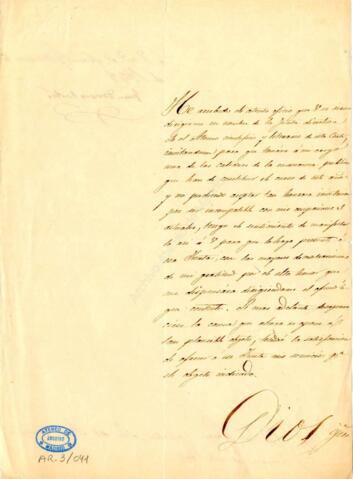 He recibido el atento oficio que V. se sirve
dirigirme en nombre de la Junta directiva
de el Ateneo científico y literario de esta Corte,
invitandome para que tomára á mi cargo
una de las cátedras de la mañana, públicas
que han de constituir el curso de este año
y no pudiendo aceptar tan honrosa invitacion
por ser incompatible con mis ocupaciones
actuales, tengo el sentimiento de manifestar
lo asi á V. para que lo haga presente á
esa Junta, con las mayores demostraciones
de mi gratitud por el alto honor que
me dispensára dirigiendome el oficio á
que contesto. Si mas adelante desapare
ciese la causa que ahora
tan plausible objeto, tendré la satisfaccion
de ofrecer á esa Junta mis servicios pª
el objeto indicado.
Dios gue
ATENEO DE
MADRID
AR-3/041